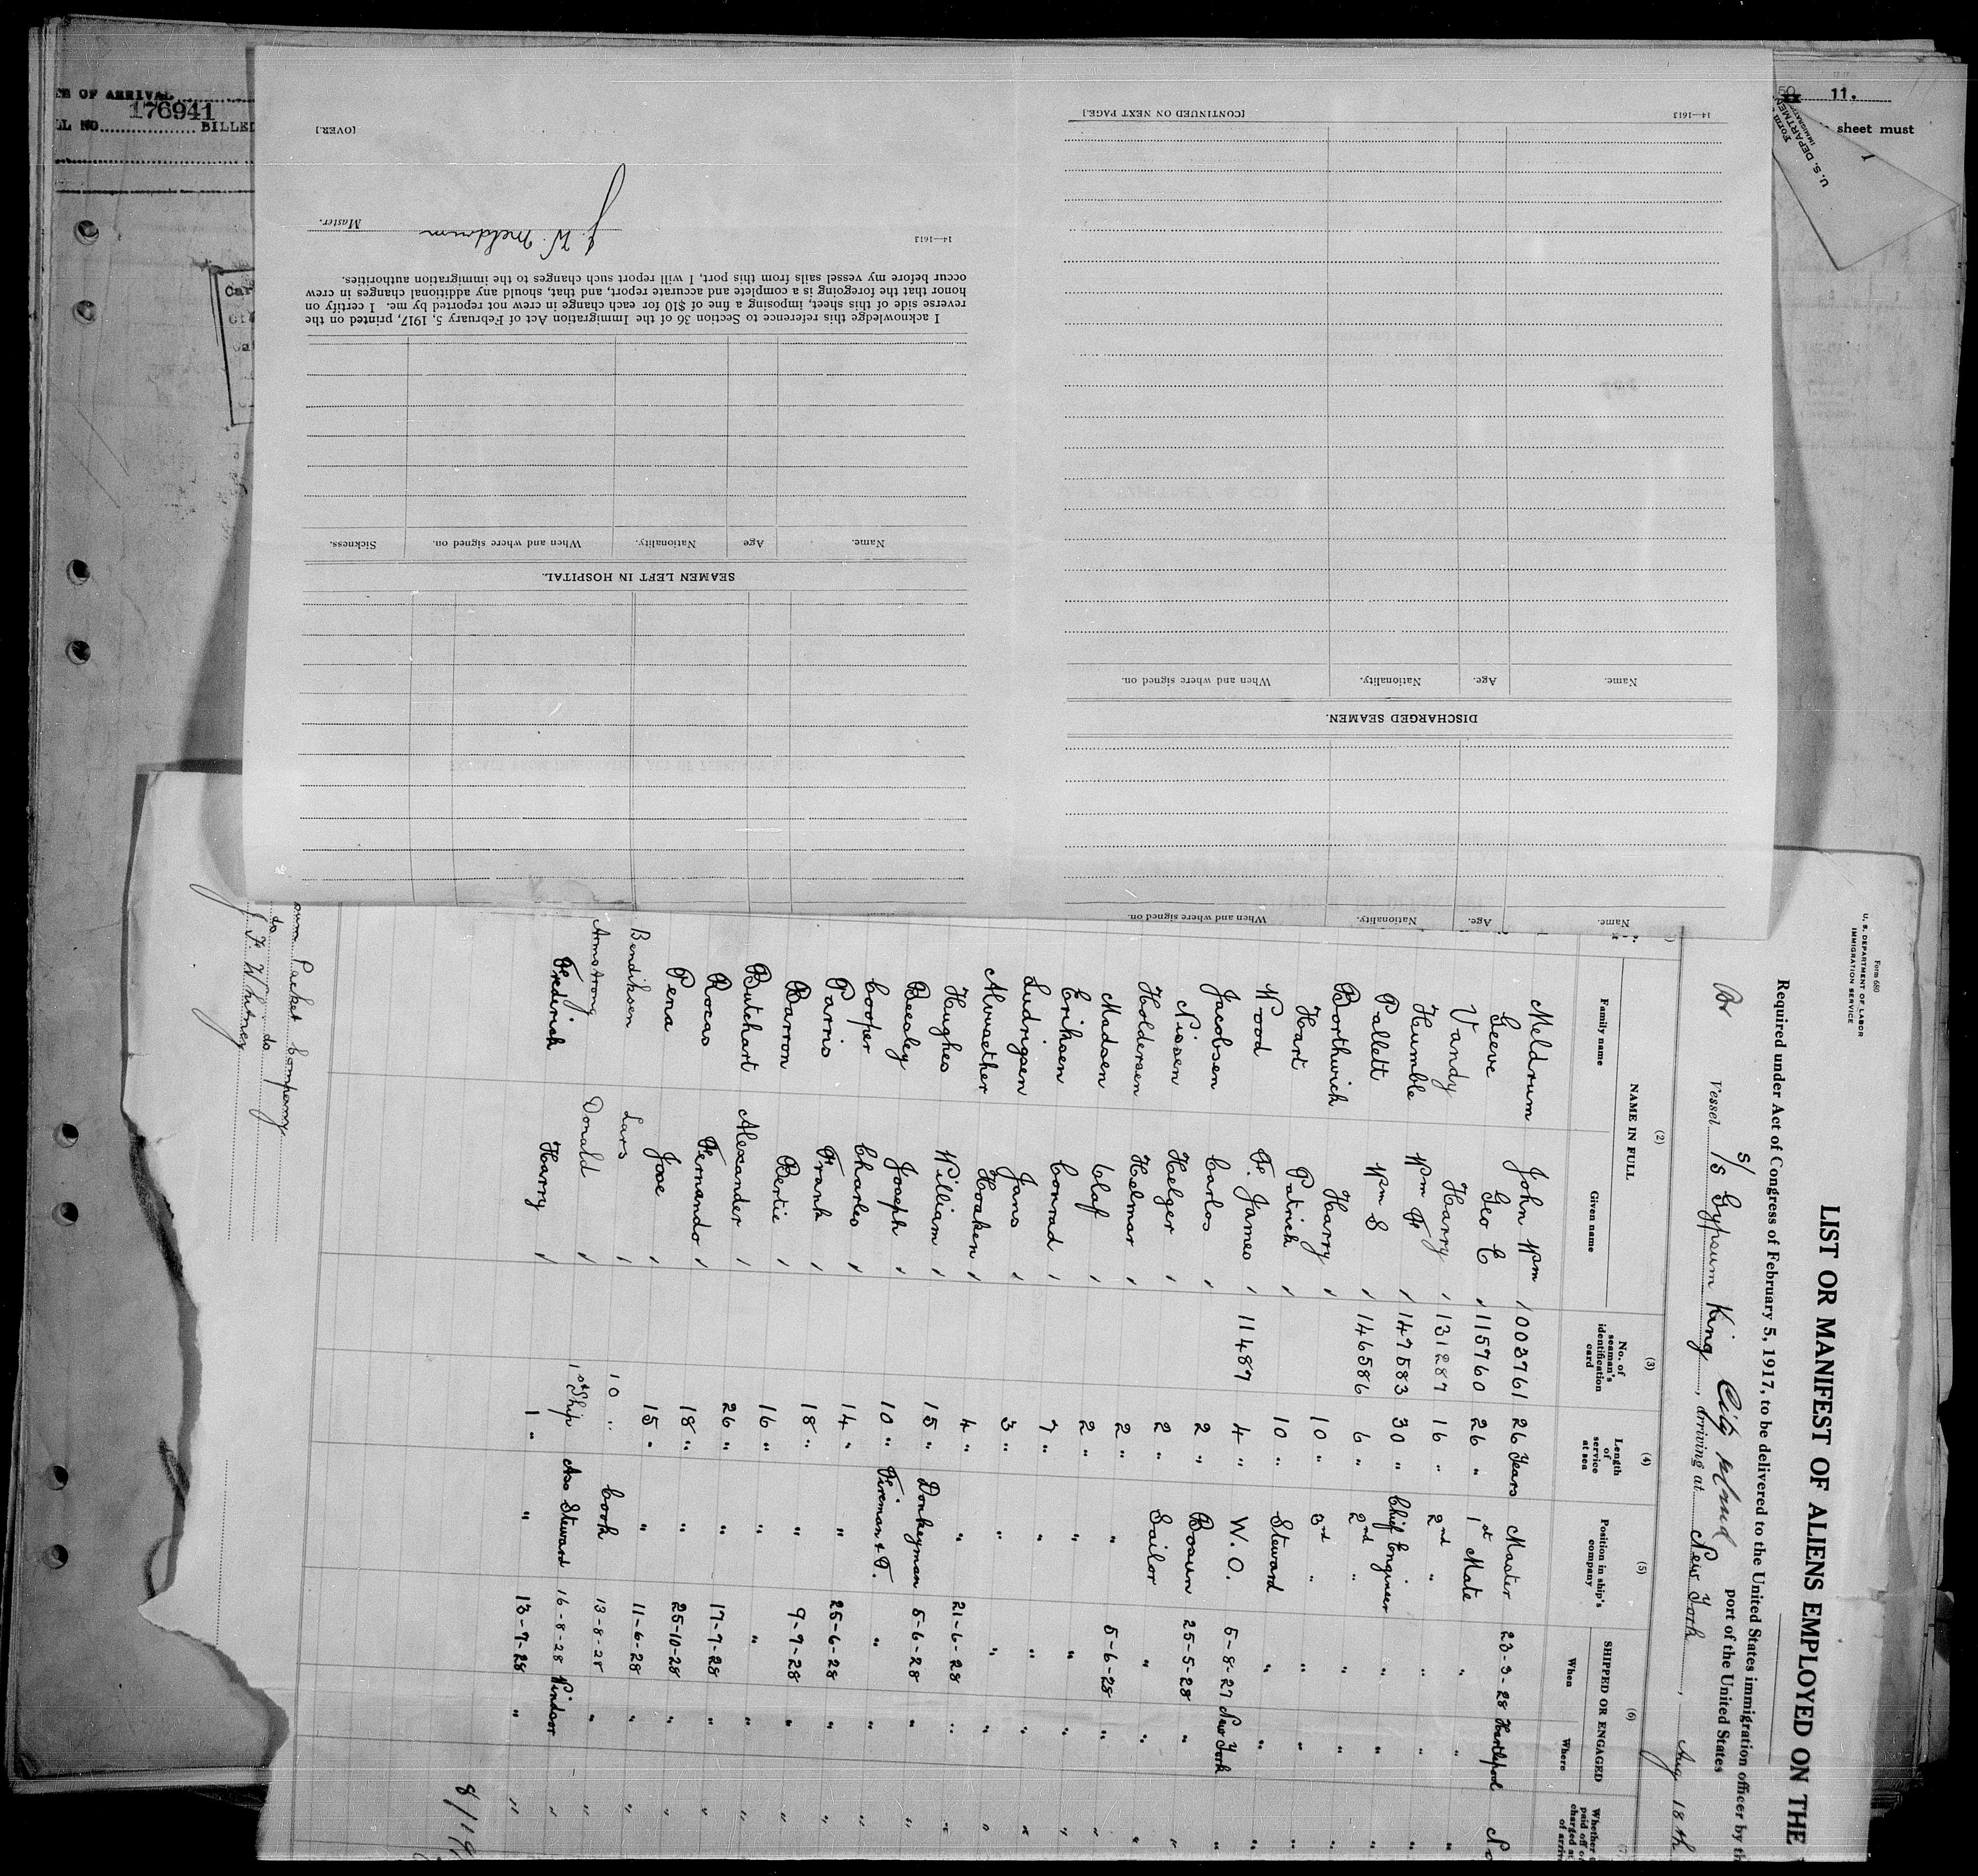 TE OF ARRIVAL
LL NO. 176941 BILLED
11.
sheet must
Form
U. S. DEPARTMEN
IMMIGRATION
Car
[CONTINUED ON NEXT PAGE.]
14—1613
DISCHARGED SEAMEN.
Name. Age. Nationality. When and where signed on.
Name. Age. Nationality. When and where signed on.
SEAMEN LEFT IN HOSPITAL.
Name. Age Nationality. When and where signed on. Sickness.
I acknowledge this reference to Section 36 of the Immigration Act of February 5, 1917, printed on the
reverse side of this sheet, imposing a fine of $10 for each change in crew not reported by me. I certify on
honor that the foregoing is a complete and accurate report, and that, should any additional changes in crew
occur before my vessel sails from this port, I will report such changes to the immigration authorities.
14—1613
J. W. Meldrum Master.
[OVER.]
Form 680
U. S. DEPARTMENT OF LABOR
IMMIGRATION SERVICE
LIST OR MANIFEST OF ALIENS EMPLOYED ON THE
Required under Act of Congress of February 5, 1917, to be delivered to the United States immigration officer by th
port of the United States
Br Vessel S/S Gypsum King, arriving at New York, Aug 18th
(2) (3) (4) (5) (6)
NAME IN FULL
Family name Given name
No. of seaman's identification card
Length of service at sea
Position in ship's company
SHIPPED OR ENGAGED
When Where
Meldrum John Wm 1003761 26 Years Master 23-3-28 Hartlepool No
Geeve Geo C 115760 26 " 1st Mate " "
Vandy Harry 131287 16 " 2nd " " "
Humble Wm F 147583 30 " Chief Engineer " "
Pallett Wm S 146586 6 " 2nd " " "
Borthwick Harry 10 " 3rd " " "
Hart Patrick 10 " Steward " "
Wood F. James 11487 4 " W.O. 5-8-27 New York "
Jacobsen Carlos 2 " Bosun 25-5-28 " "
Nissen Helger 2 " Sailor " " "
Holdersen Helmar 2 " " 5-6-28 " "
Madsen Olaf 2 " " " " "
Eriksen Conrad 7 " " " " "
Ludrigsen Jans 3 " " " " "
Alwaether Hoaken 4 " " 21-6-28 " "
Hughes William 15 " Donkeyman 5-6-28 " "
Beesley Joseph 10 " Fireman & T. " " "
Cooper Charles 14 " " 25-6-28 " "
Parris Frank 18 " " 9-7-28 " "
Barron Bertie 16 " " " " "
Butchart Alexander 26 " " 17-7-28 " "
Rocas Fernando 18 " " 25-10-28 " "
Pena Jose 15 " " 11-6-28 " "
Bendiksen Lars 10 " Cook 13-8-28 " "
Armstrong Donald 1st Ship Ass Steward 16-8-28 Windsor "
Fredrick Harry 1 " " 13-7-28 " "
8/19
Packet Company
do do
J. F. Whitney